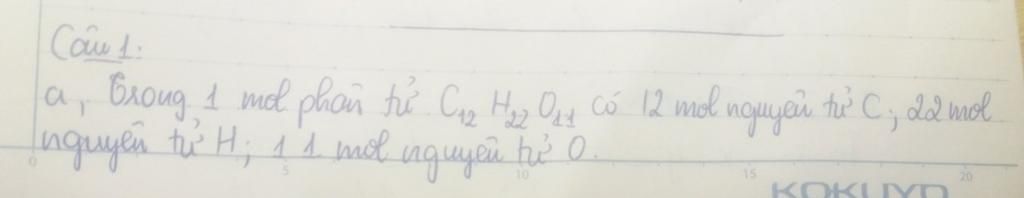 Câu 1:
a, Trong 1 mol phân tử C₁₂H₂₂O₁₁ có 12 mol nguyên tử C; 22 mol
nguyên tử H; 11 mol nguyên tử O.
0 5 10 15 20
KOKUYO